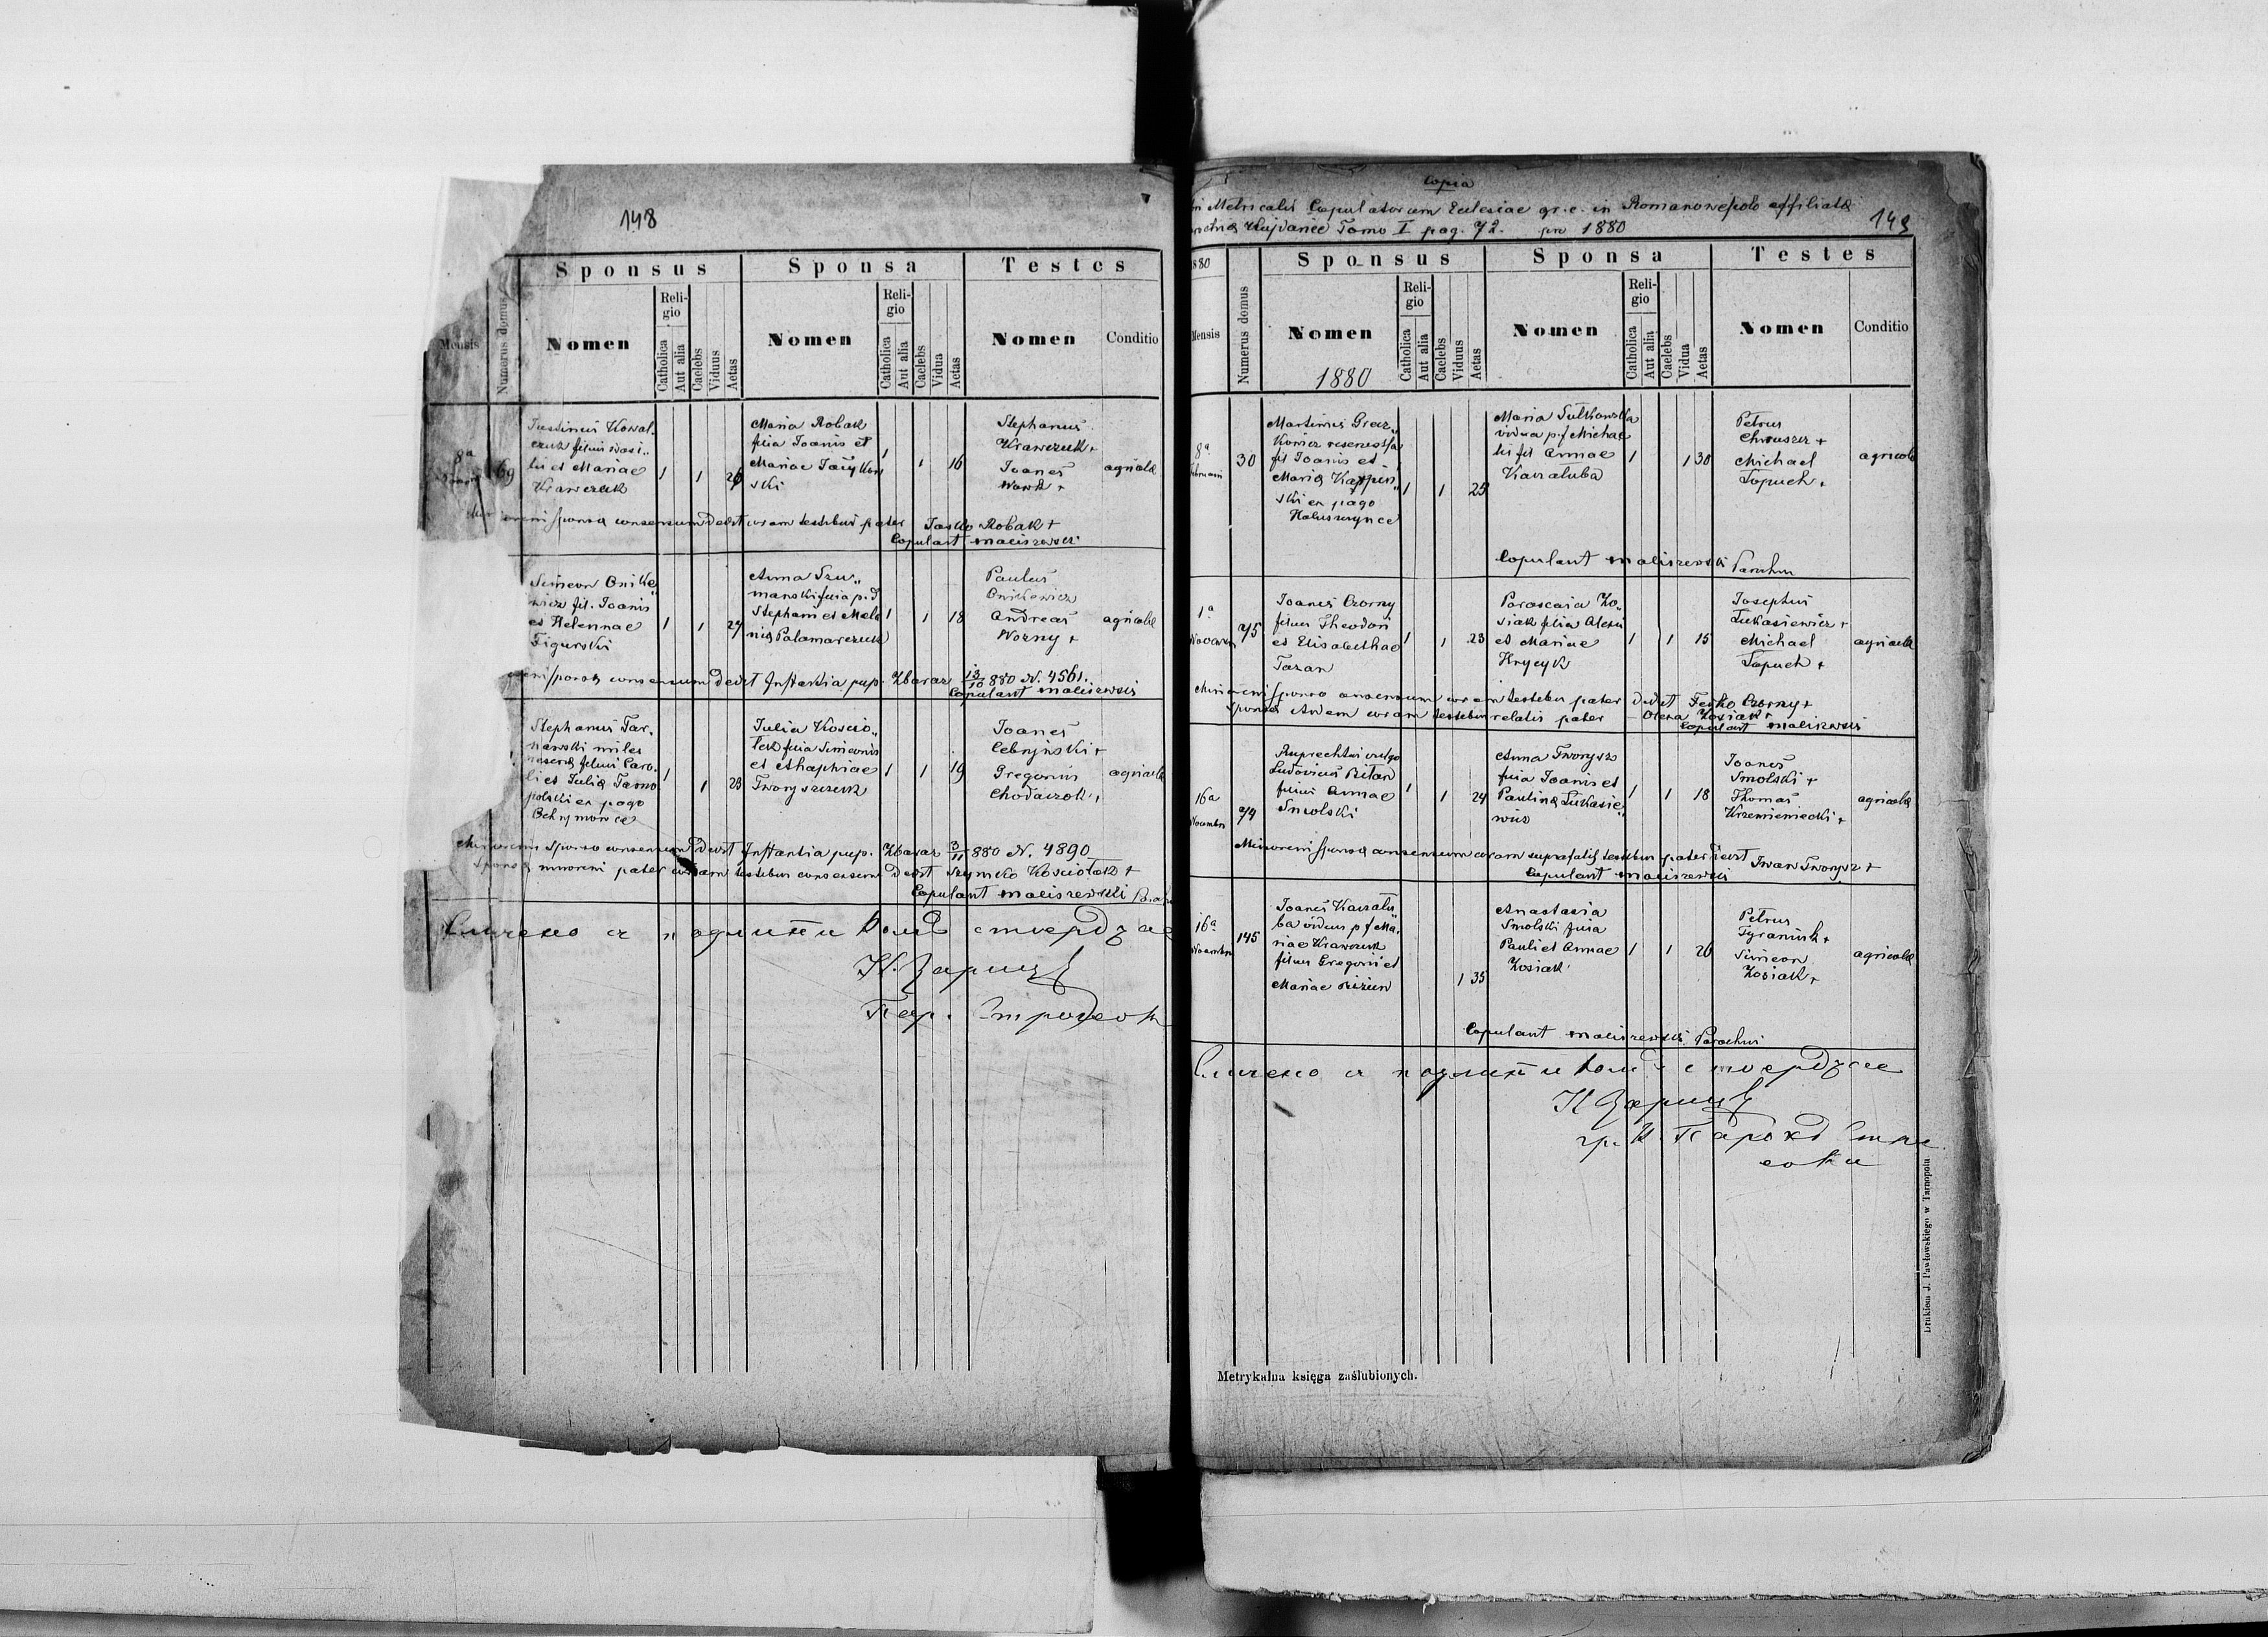 148
Sponsus Sponsa Testes
Mensis Numerus domus Nomen Religio Catholica Aut alia Caelebs Viduus Aetas Nomen Religio Catholica Aut alia Caelebs Vidua Aetas Nomen Conditio
8a 69
Justinus Kowal„
czuk filius Wasi„
lii et Mariae
Krawczuk
1 1 26
Maria Robak
filia Joanis et
Mariae
ski
1 1 16
Stephanus
Krawczuk +
Joanes
Wowk +
agricola
sponsa consensum dedit coram testibus pater Jasko Robak +
Copulavit Maliszewski
Simeon Onike„
wicz fil. Joanis
et Helennae
Figurski
1 1 24
Anna Szu„
manski filia p.d
Stephani et Mela
nia Palamarczuk
1 1 18
Paulus
Onikiewicz
Andreas
Worny +
agricola
sponsa consensum dedit Instantia pup. Zbaraz 13/10 880 N. 4561.
Copulavit Maliszewski
Stephanus Tar„
nawski miles
reserva filius Caro„
li et Julia Tarno
polski ex pago
Ochrymowce
1 1 23
Julia Koscio„
łek filia Simeonis
et Ahaphiae
Tworyszczuk
1 1 19
Joanes
Cebryjnski +
Gregorius
Chodaczok +
agricola
Minoreni Sponso consensum dedit Instantia pup. Zbaraz 3/11 880 N. 4890
Sponsa minoreni pater coram testibus consensum dedit Szymko Kościołek +
Copulavit Maliszewski
Сличено и з подлинником стверджае
Н. Зариц
Пар.
Copia
Metricalis Copulatorum Ecclesiae gr. c. in Romanowepolo affiliata
Klujdańce Tomo I pag. 72. pro 1880
149
1880
Sponsus Sponsa Testes
Mensis Numerus domus Nomen Religio Catholica Aut alia Caelebs Viduus Aetas Nomen Religio Catholica Aut alia Caelebs Vidua Aetas Nomen Conditio
1880
8a Februarii 30
Martinus Grecz„
kowicz reservista
fil Joanis et
Maria Karpin„
ski ex pago
Hałuszczynce
1 1 25
Maria Sulkowska
vidua p.f Michae
lis fil Annae
Kawałuba
1 1 30
Petrus
Chruszcz +
Michael
Sopuch +
agricola
Copulavit Maliszewski Parochus
1a Novembr 75
Joanes Czorny
filius Theodori
et Elisabethae
Tazan
1 1 23
Parascaia Ko„
siak filia Alexii
et Mariae
Hrycyk
1 1 15
Josephus
Łukasiewicz +
Michael
Sopuch +
agricola
Minoreni Sponso consensum coram testibus pater dedit Fedko Czorny +
Sponsa item coram testibus relatis pater Olexa Kosiak +
Copulavit Maliszewski
16a Novembr 74
Ruprechtus vulgo
Ludovicus Ritan
filius Annae
Smolski
1 1 24
Anna Tworysz
filia Joanis et
Paulina Łukasie„
wicz
1 1 18
Joanes
Smolski +
Thomas
Krzemieniecki +
agricola
Minoreni sponsa consensum coram suprafatis testibus pater dedit Iwan Tworysz +
Copulavit Maliszewski
16a Novembr 145
Joanes Kawału„
ba viduus p f Ma„
riae Krawczuk
filius Gregorii et
Mariae Rizun
1 35
Anastasia
Smolski filia
Pauli et Annae
Kosiak
1 1 26
Petrus
Tyraninik +
Simeon
Kosiak +
agricola
Copulavit Maliszewski Parochus
Сличено и з подлинником стверджае
Н Зариц
гр. к. Парох
Metrykalna księga zaślubionych.
Drukiem J. Pawłowskiego w Tarnopolu